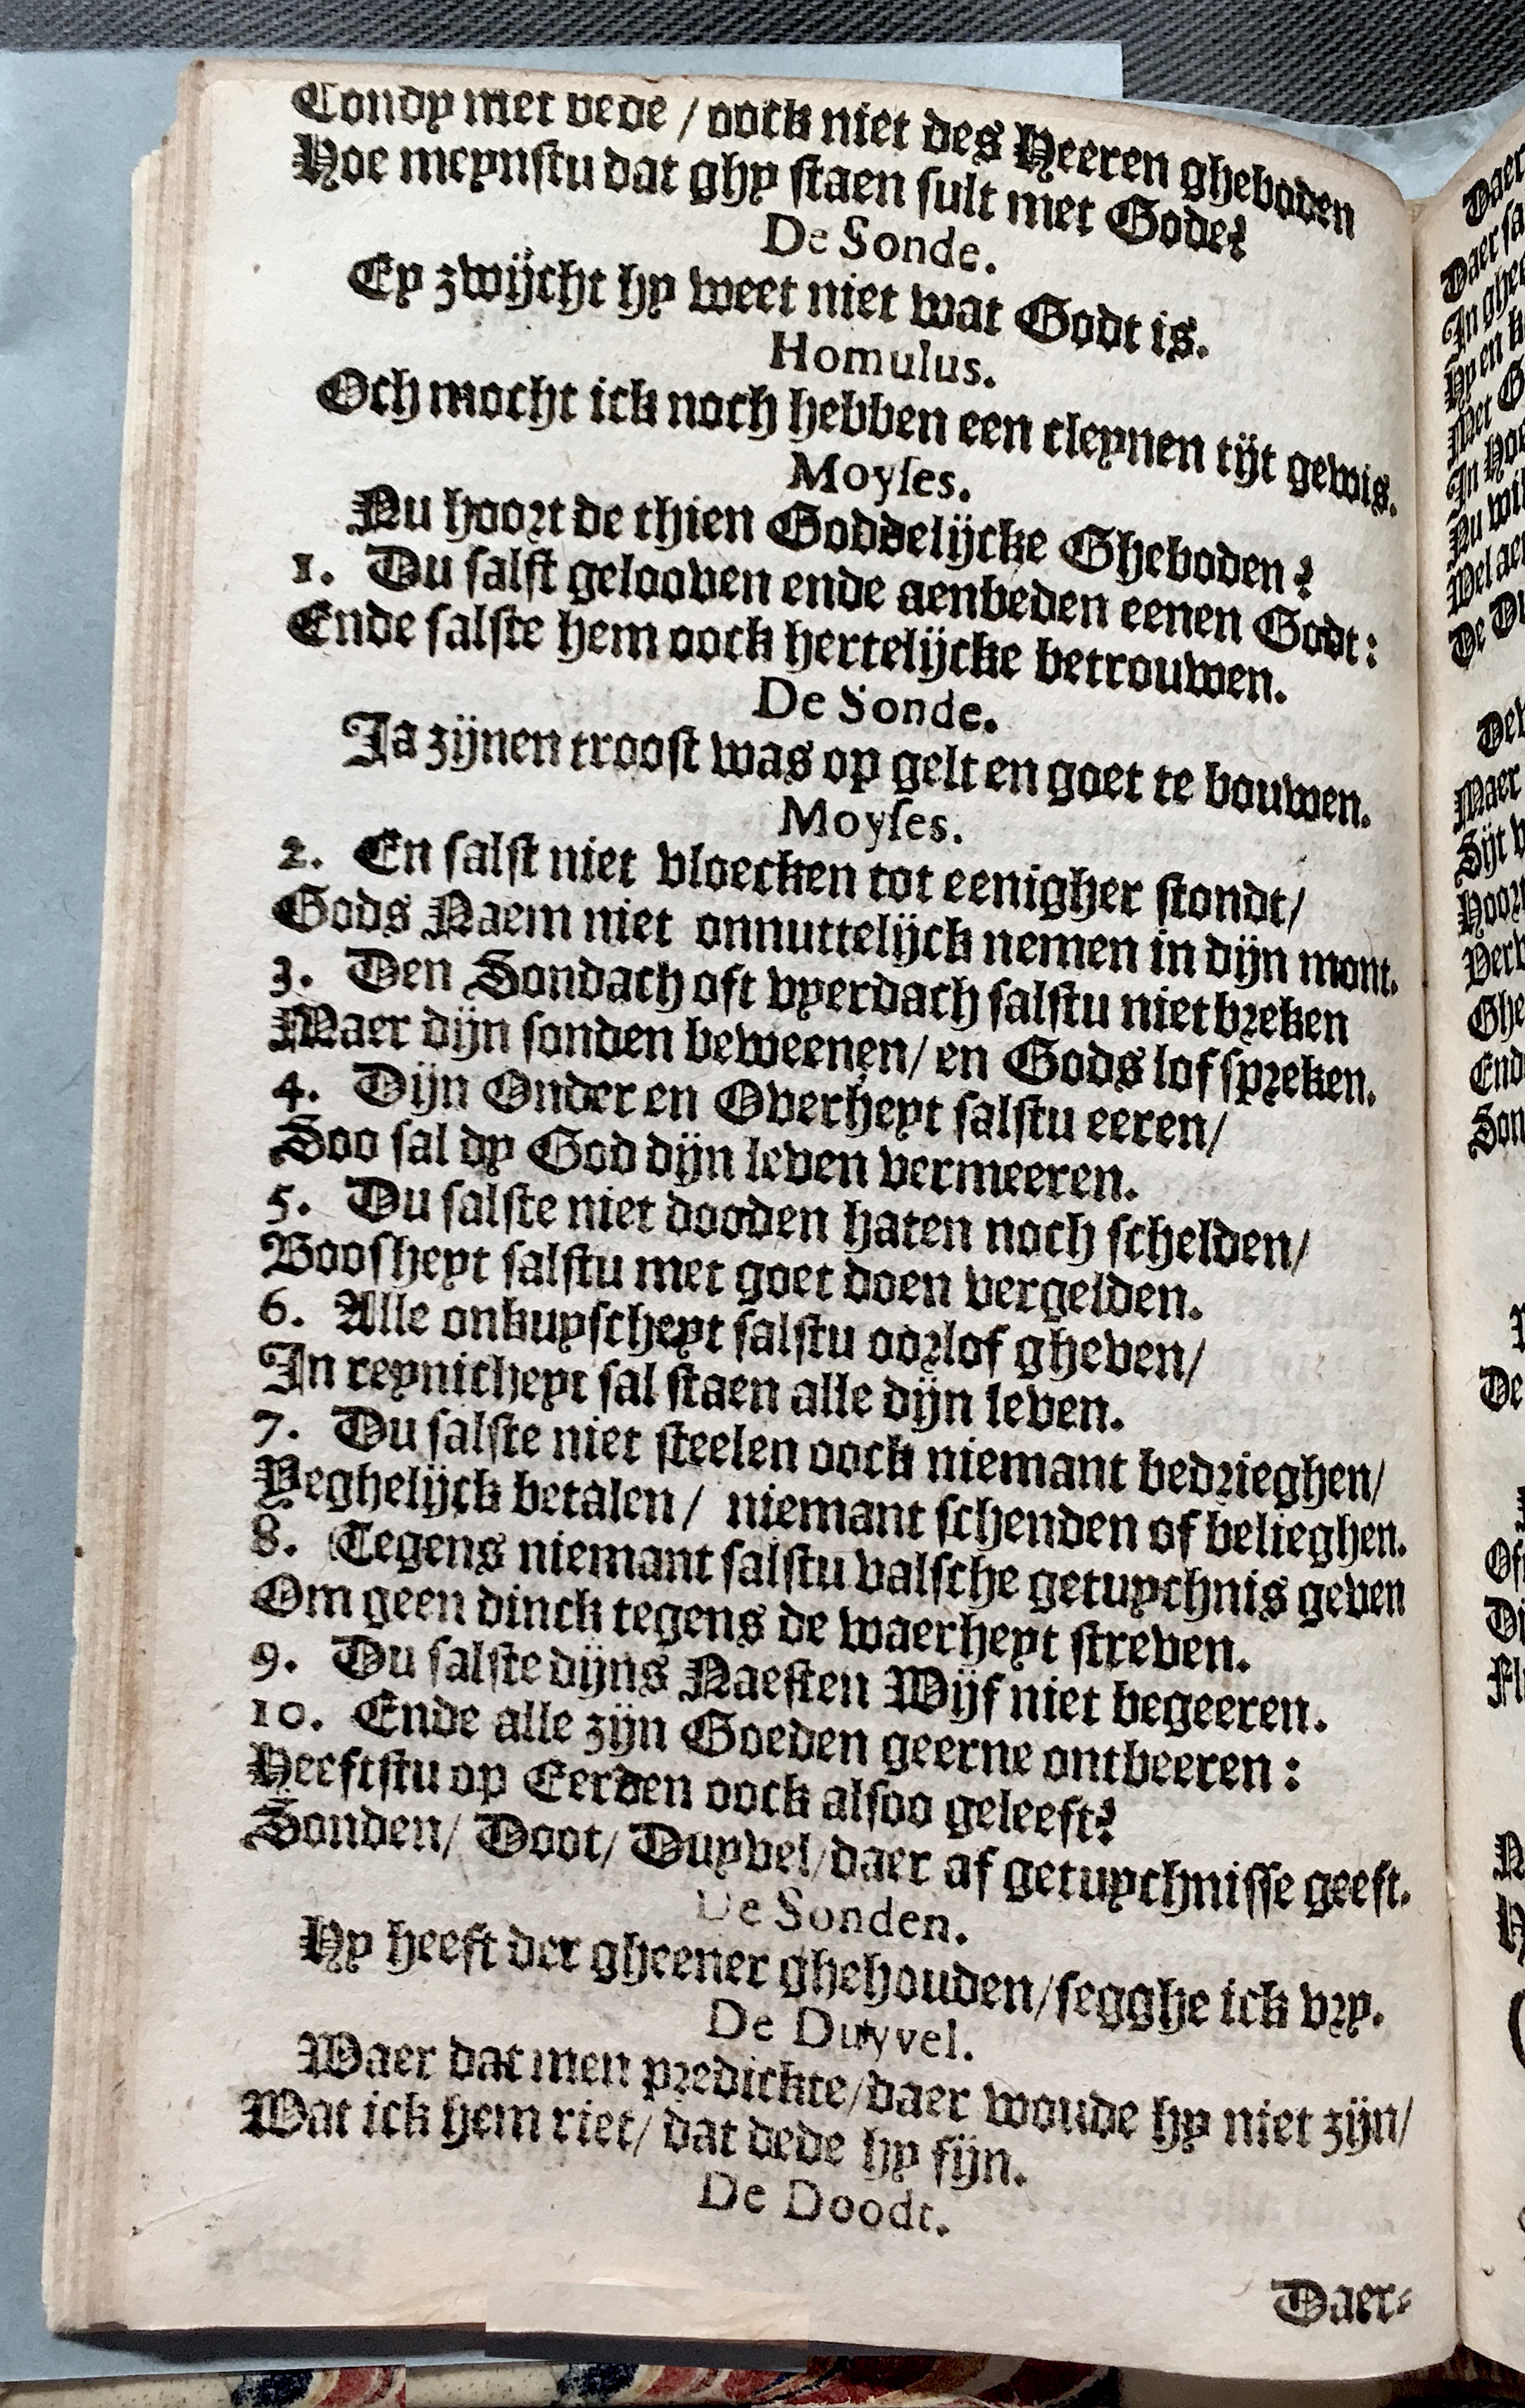 Condy niet bede / oock niet des Heeren gheboden
Hoe meynstu dat ghy staen sult met Gode?
De Sonde.
Ey zwijcht hy weet niet wat Godt is.
Homulus.
Och mocht ick noch hebben een cleynen tijt gewis.
Moyses.
Nu hoort de thien Goddelijcke Gheboden?
1. Du salst gelooven ende aenbeden eenen Godt:
Ende salste hem oock hertelijcke betrouwen.
De Sonde.
Ja zijnen troost was op gelt en goet te bouwen.
Moyses.
2. En salst niet vloecken tot eenigher stondt/
Gods Naem niet onnuttelijck nemen in dijn mont.
3. Den Sondach oft vyerdach salstu niet breken
Maer dijn sonden beweenen/ en Gods lof spreken.
4. Dijn Onder en Overheyt salstu eeren/
Soo sal dy God dijn leven vermeeren.
5. Du salste niet dooden haten noch schelden/
Boosheyt salstu met goet doen vergelden.
6. Alle onkuyscheyt salstu oorlof gheven/
In reynicheyt sal staen alle dijn leven.
7. Du salste niet steelen oock niemant bedrieghen/
Yeghelijck betalen/ niemant schenden of belieghen.
8. Tegens niemant salstu valsche getuychnis geven
Om geen dinck tegens de waerheyt streven.
9. Du salste dijns Naesten Wijf niet begeeren.
10. Ende alle zijn Goeden geerne ontbeeren:
Heeftstu op Eerden oock alsoo geleeft?
Sonden/ Doot/ Duyvel/ daer af getuychnisse geeft.
De Sonden.
Hy heeft der gheener ghehouden/ segghe ick vry.
De Duyvel.
Waer dat men predickte/ daer woude hy niet zijn/
Wat ick hem riet/ dat dede hy fijn.
De Doodt.
Daer-